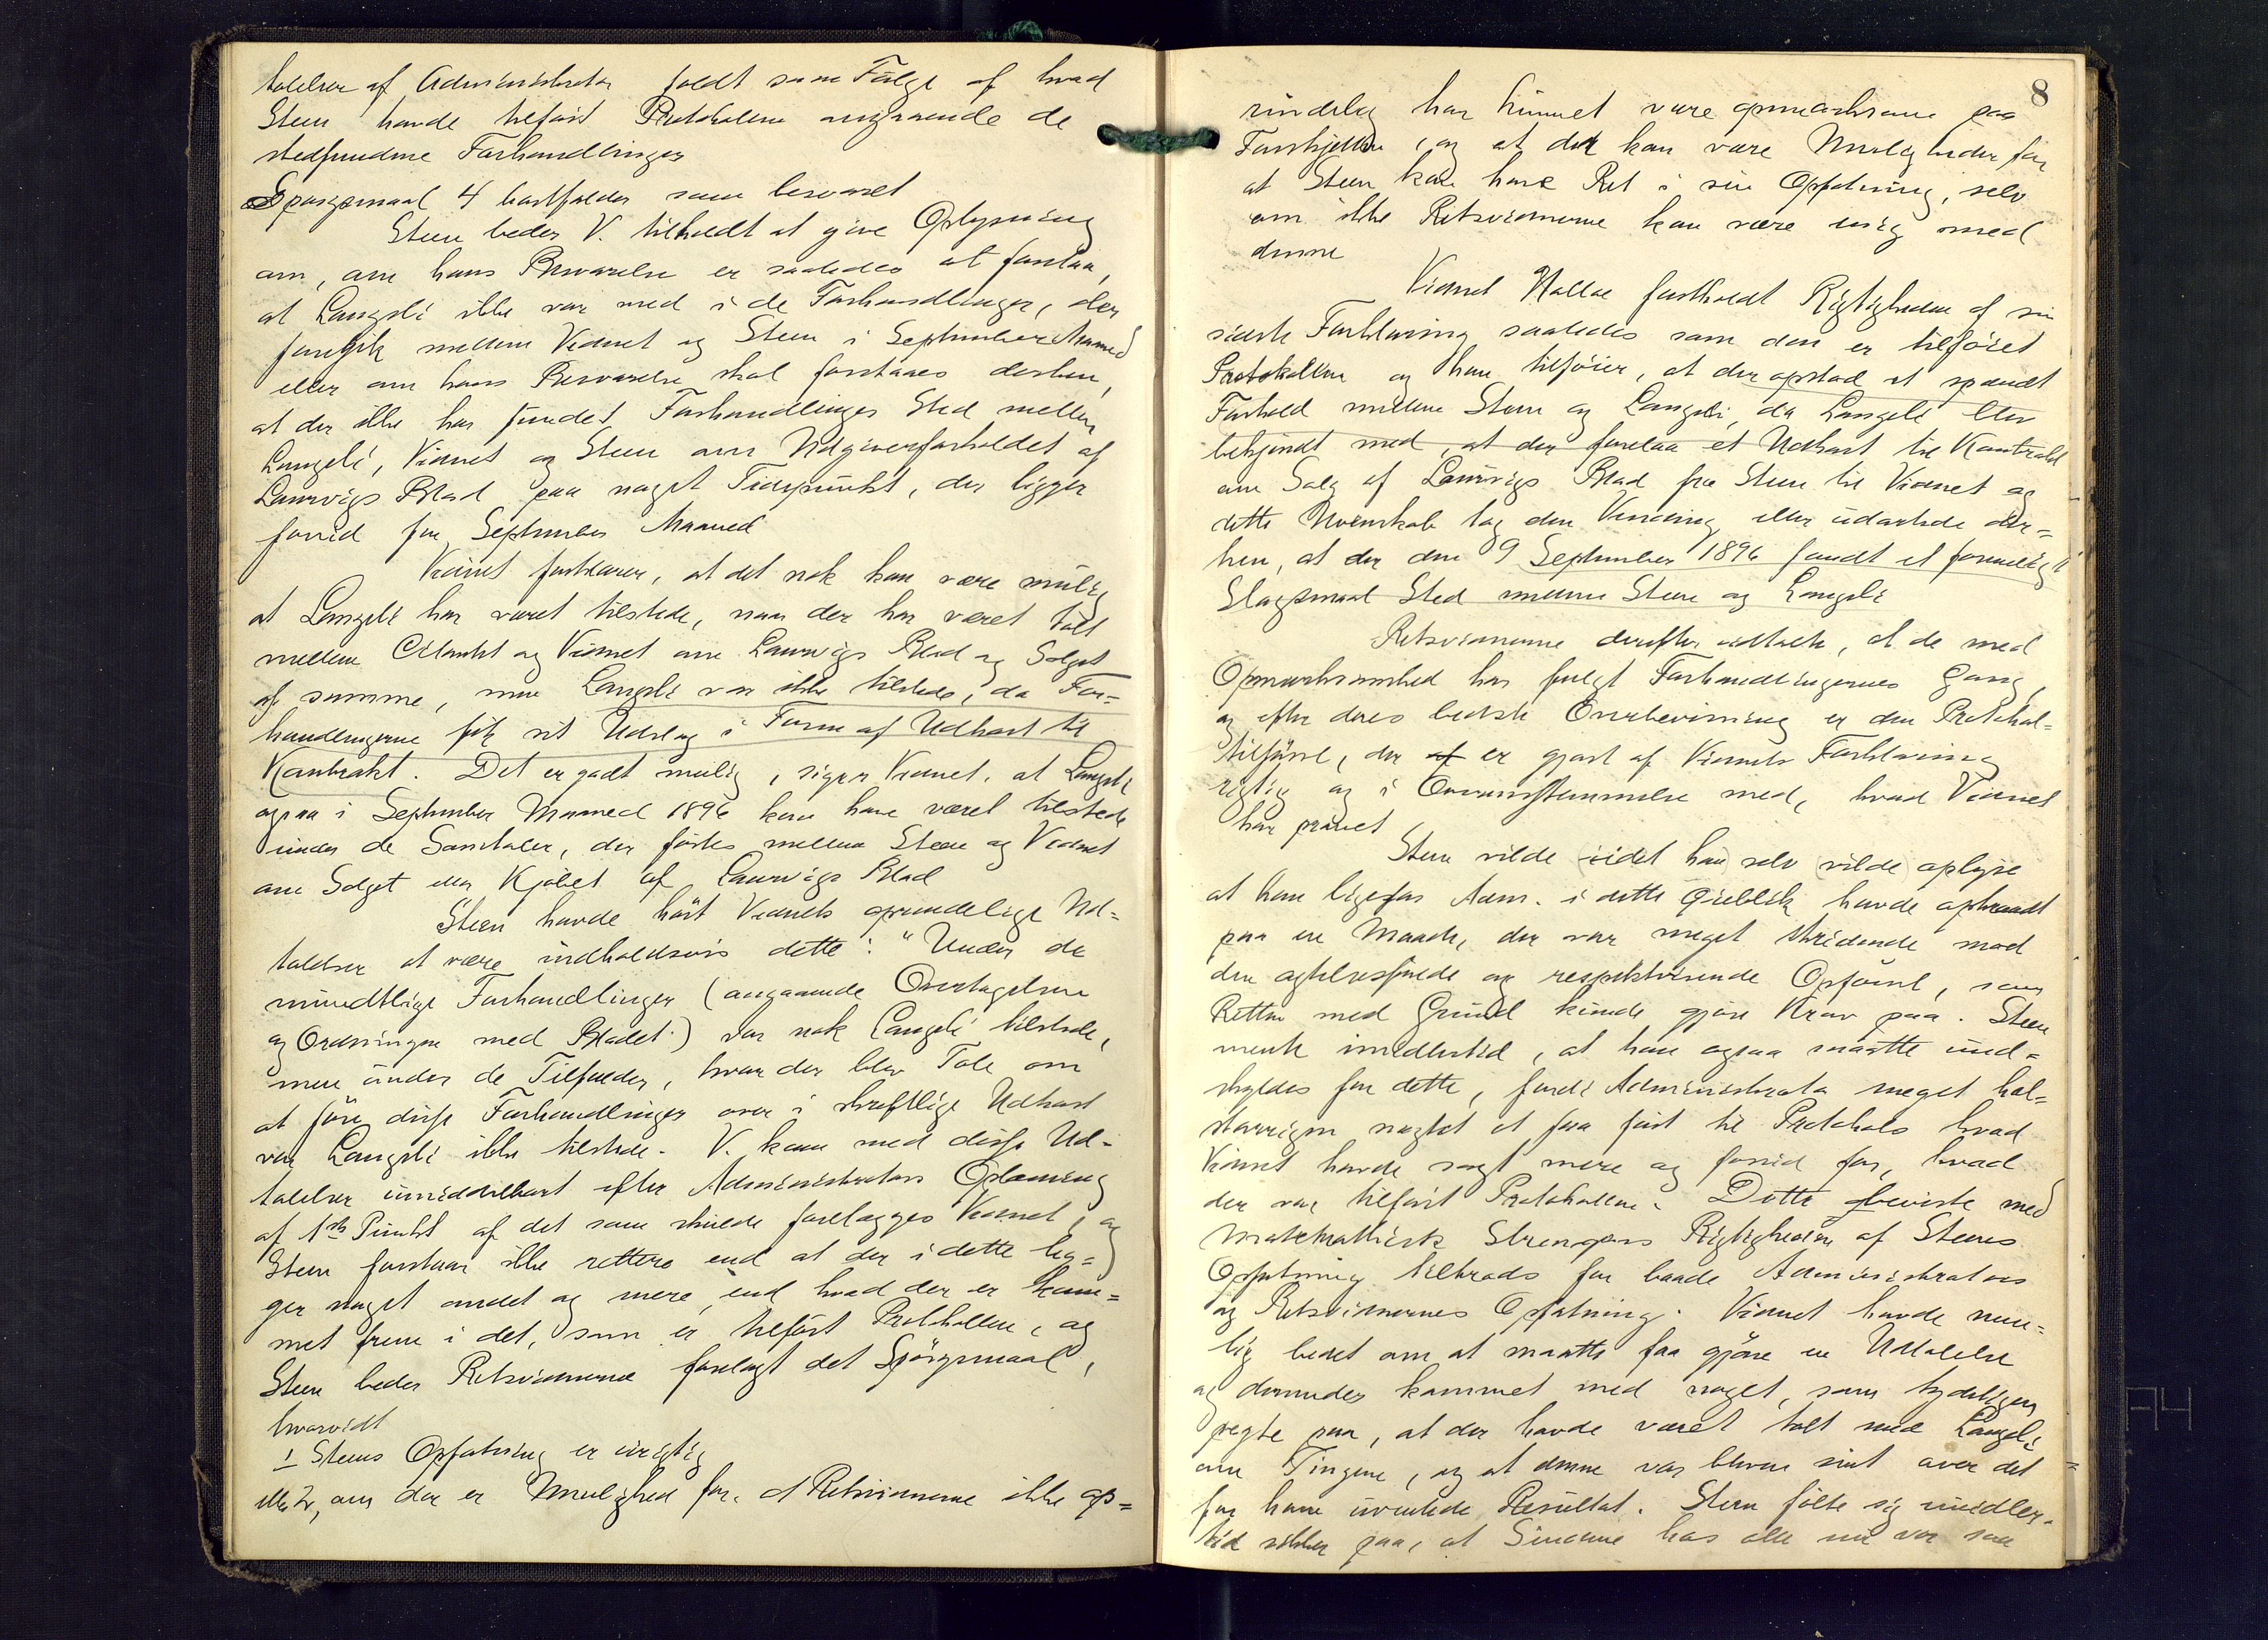 talelser af Administrator faldt som Følge af hvad
Steen havde tilført Protokollen angaaende de
stedfundne Forhandlinger
Spørgsmaal 4 bortfalder som besvaret
Steen beder V. tilholdt at give Oplysning
om, om hans Besvarelse er saaledes at forstaa,
at Langeli ikke var med i de Forhandlinger, der
foregik mellem Vidnet og Steen i September Maaned
eller om hans Besvarelse skal forstaaes derhen,
at der ikke har fundet Forhandlinger Sted mellem
Langeli, Vidnet og Steen om Udgiverforholdet af
Laurvigs Blad paa noget Tidspunkt, der ligger
forud for September Maaned
Vidnet forklarer, at det nok kan være mulig
at Langeli har været tilstede, naar der har været talt
mellem Citanten og Vidnet om Laurvigs Blad og Salget
af samme, men Langeli var ikke tilstede, da For-
handlingerne fik sit Udslag i Form af Udkast til
Kontrakt. Det er godt mulig, siger Vidnet, at Langeli
ogsaa i September Maaned 1896 kan have været tilstede
under de Samtaler, der førtes mellem Steen og Vidnet
om Salget eller Kjøbet af Laurvigs Blad
Steen havde hørt Vidnets oprindelige Ud-
talelser at være indholdsvis dette: "Under de
mundtlige Forhandlinger (angaaende Overtagelsen
og Ordningen med Bladet) var nok Langeli tilstede,
men under de Tilfælder, hvor der blev Tale om
at føre disse Forhandlinger over i skriftlige Udkast
var Langeli ikke tilstede. V. kom med disse Ud-
talelser umiddelbart efter Administrators Oplæsning
af 1ste Punkt af det som skulde forelægges Vidnet, og
Steen forstaar ikke rettere end at der i dette lig-
ger noget andet og mere, end hvad der er kom-
met frem i det, som er tilført Protokollen, og
Steen beder Retsvidnerne forelagt det Spørgsmaal,
hvorvidt
1 Steens Opfatning er urigtig
eller 2, om der er Mulighed for, at Retsvidnerne ikke op-
8
rindelig har kunnet være opmærksomme paa
Forskjellen, og at der kan være Muligheder for
at Steen kan have Ret i sin Opfatning, selv
om ikke Retsvidnerne kan være enig med
denne
Vidnet Halle fastholdt Rigtigheden af sin
sidste Forklaring saaledes som den er tilføiet
Protokollen og han tilføier, at der opstod et spændt
Forhold mellem Steen og Langeli, da Langeli blev
bekjendt med, at der forelaa et Udkast til Kontrakt
om Salg af Laurvigs Blad fra Steen til Vidnet og
dette Uvenskab tog den Vending eller udartede der-
hen, at der den 9 September 1896 fandt et formeligt
Slagsmaal Sted mellem Steen og Langeli
Retsvidnerne derefter udtalte, at de med
Opmærksomhed har fulgt Forhandlingernes Gang,
og efter deres bedste Overbevisning er den Protokol-
tilførsel, der er gjort af Vidnets Forklaring
rigtig og i Overensstemmelse med, hvad Vidnet
har prøvet
Steen vilde (idet han) selv (vilde) oplyse
at han ligefor Adm. i dette Øieblik havde optraadt
paa en Maade, der var meget stridende mod
den agtelsesfulde og respektvisende Opførsel, som
Retten med Grund kunde gjøre Krav paa. Steen
mente imidlertid, at han ogsaa maatte und-
skyldes for dette, fordi Administrator meget hal-
starrigen nægtet at faa ført til Protokols hvad
Vidnet havde sagt mere og forud for, hvad
der var tilført Protokollen. Dette beviste med
matematisk Strenghed Rigtigheden af Steens
Opfatning tiltrods for baade Administrators
og Retsvidnernes Opfatning. Vidnet havde nem-
lig bedet om at maatte faa gjøre en Udtalelse
og derunder kommet med noget, som tydeligen
pegte paa, at der havde været talt med Langeli
om Tingene, og at denne var bleven sint over det
for ham uventede Resultat. Steen følte sig imidler-
tid sikker paa, at Sindene hos alle nu var saa